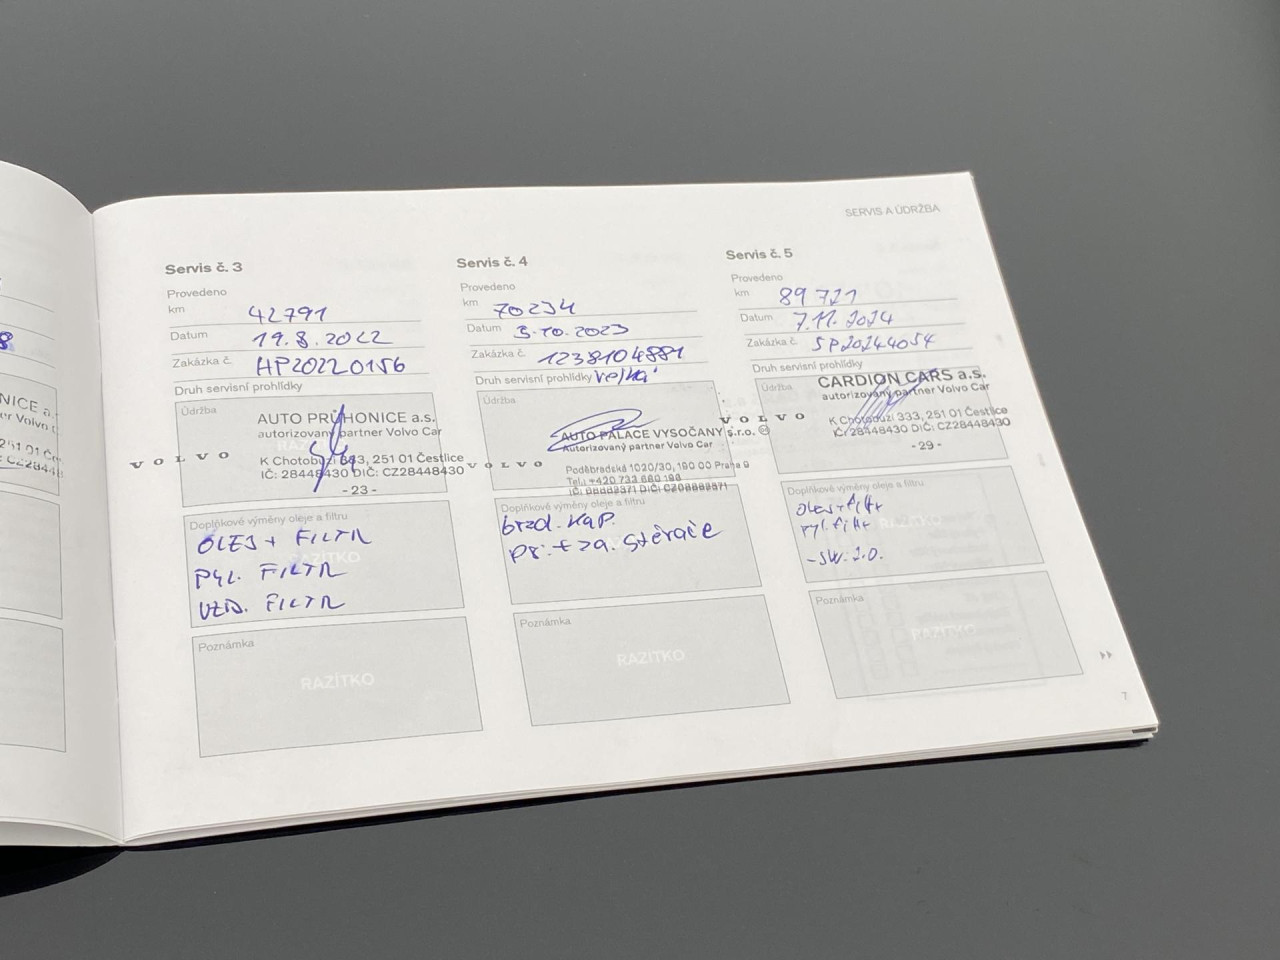 SERVIS A ÚDRŽBA
Servis č. 3
Provedeno
km 42791
Datum 19.8.2022
Zakázka č. HP20220156
Druh servisní prohlídky
Údržba
AUTO PRŮHONICE a.s.
autorizovaný partner Volvo Car
VOLVO
K Chotobuzi 333, 251 01 Čestlice
IČ: 28448430 DIČ: CZ28448430
- 23 -
Doplňkové výměny oleje a filtru
OLEJ + FILTR
PYL. FILTR
VZD. FILTR
RAZÍTKO
Poznámka
RAZÍTKO
Servis č. 4
Provedeno
km 70234
Datum 3.10.2023
Zakázka č. 1238104881
Druh servisní prohlídky velká
Údržba
AUTO PALACE VYSOČANY s.r.o.
Autorizovaný partner Volvo Car
VOLVO
Poděbradská 1020/30, 190 00 Praha 9
Doplňkové výměny oleje a filtru
brzd. kap.
př. + za. stěrače
Poznámka
RAZÍTKO
Servis č. 5
Provedeno
km 89721
Datum 7.11.2024
Zakázka č. SP20244054
Druh servisní prohlídky
Údržba
CARDION CARS a.s.
autorizovaný partner Volvo Car
VOLVO
K Chotobuzi 333, 251 01 Čestlice
IČ: 28448430 DIČ: CZ28448430
- 29 -
Doplňkové výměny oleje a filtru
olej + filtr
pyl. filtr
RAZÍTKO
Poznámka
RAZÍTKO
7